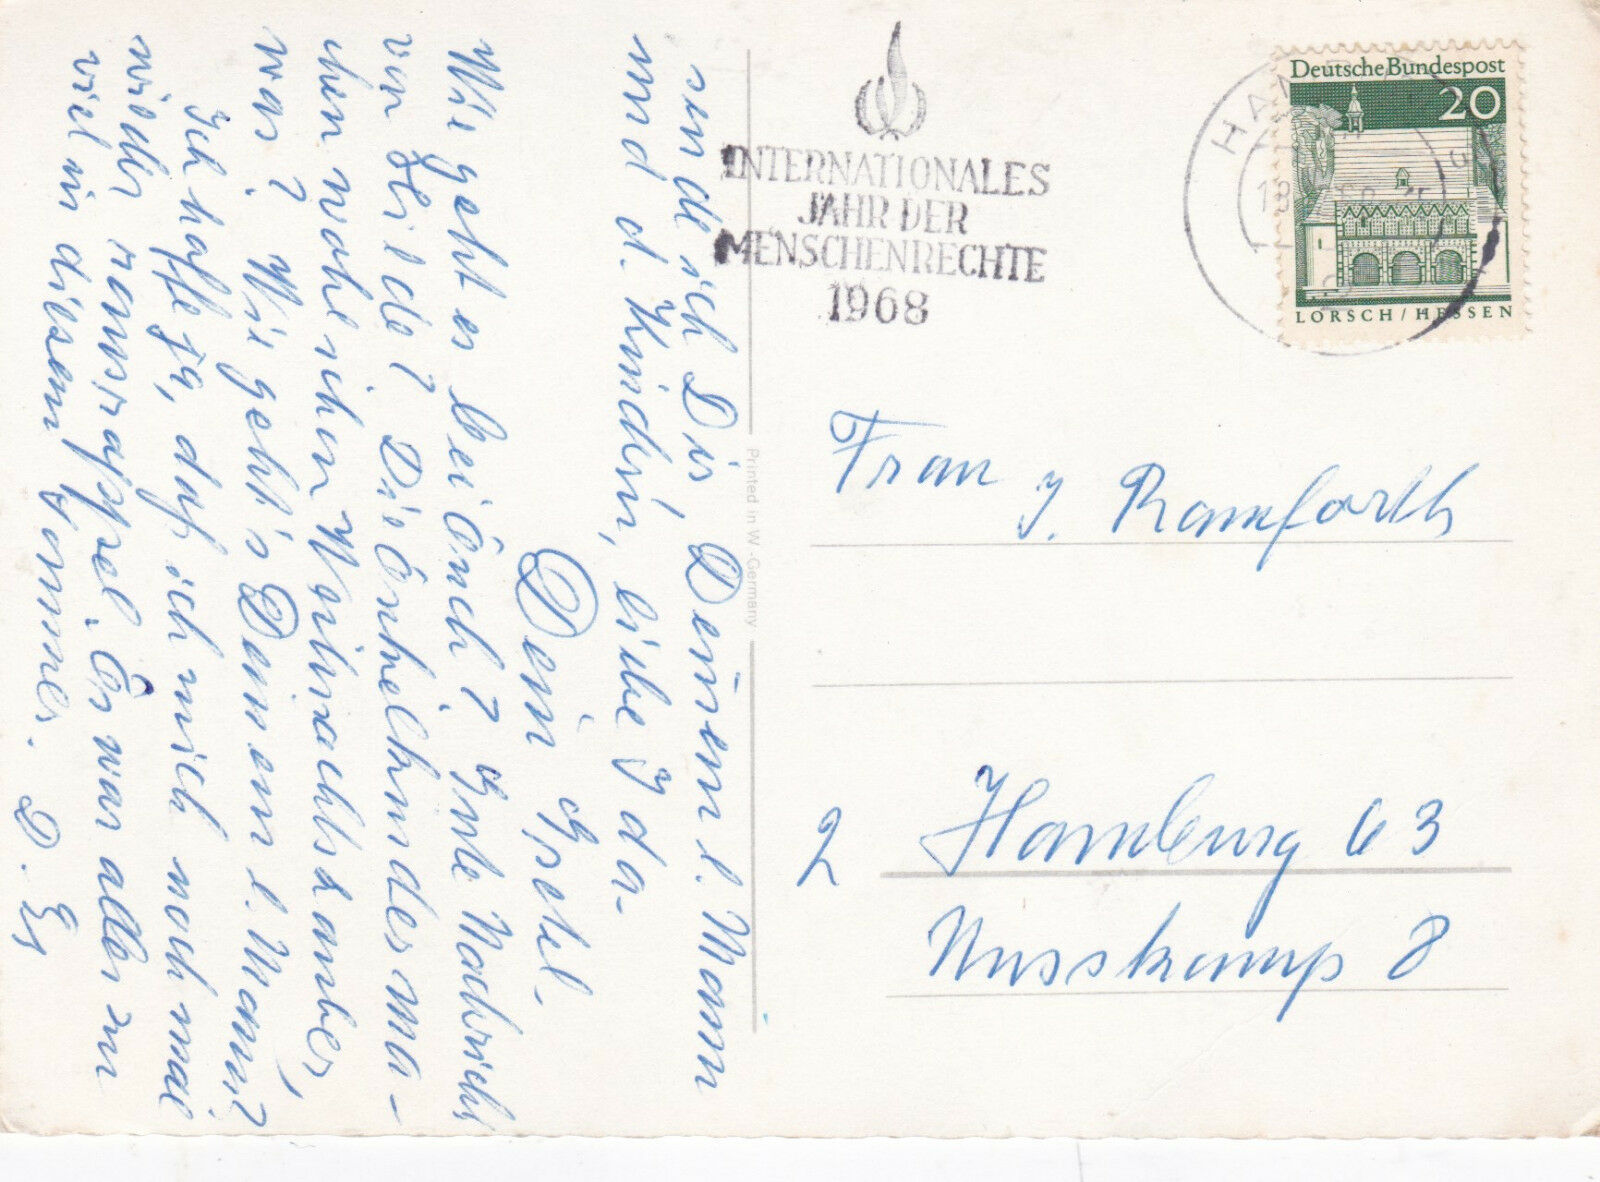 sende ich Dir, Deinem l. Mann
und d. Kindern, liebe Ida
Dein
Wie geht es bei Euch? Gute Nachricht
von Hilde? Die Enkelkinder ma-
chen wohl schon Weihnachtszauber,
was? Wie geht's Deinem l. Mann?
Ich hoffe ja, daß ich mich noch mal
wieder ranrappel. Es war alles zu
viel in diesem Sommer. D.
Printed in W.-Germany
INTERNATIONALES
JAHR DER
MENSCHENRECHTE
1968
HAM
18
Deutsche Bundespost
20
LORSCH / HESSEN
Frau J. Ramforth
2 Hamburg 63
Nusskamp 8